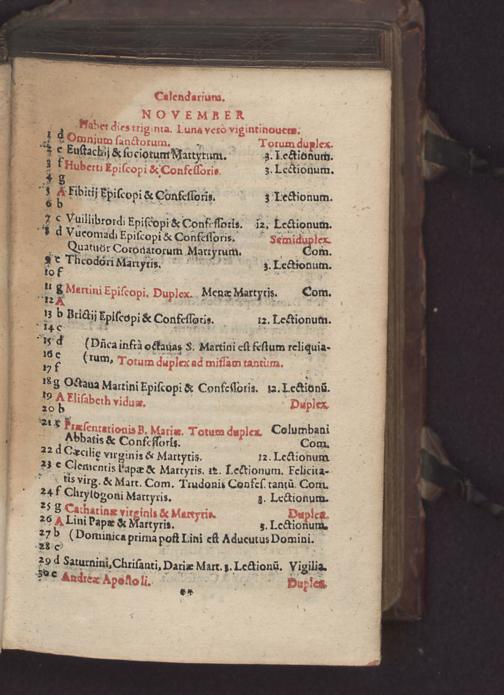 Calendarium.
NOVEMBER
Habet dies triginta. Luna verò vigintinouem.
1 d Omnium sanctorum. Totum duplex.
2 e Eustachij & sociorum Martyrum. 3. Lectionum.
3 f Huberti Episcopi & Confessoris. 3. Lectionum.
4 g
5 A Fibitij Episcopi & Confessoris. 3 Lectionum.
6 b
7 c Vuillibrordi Episcopi & Confessoris. 12. Lectionum.
8 d Vueomadi Episcopi & Confessoris. Semiduplex.
Quatuor Coronatorum Martyrum. Com.
9 e Theodori Martyris. 3. Lectionum.
10 f
11 g Martini Episcopi. Duplex. Menæ Martyris. Com.
12 A
13 b Brictij Episcopi & Confessoris. 12. Lectionum.
14 c
15 d (Dñca infrà octauas S. Martini est festum reliquia-
16 e (rum, Totum duplex ad missam tantùm.
17 f
18 g Octaua Martini Episcopi & Confessoris. 12. Lectionũ.
19 A Elisabeth viduæ. Duplex.
20 b
21 c Præsentationis B. Mariæ. Totum duplex. Columbani
Abbatis & Confessoris. Com.
22 d Cæcilię virginis & Martyris. 12. Lectionum
23 e Clementis Papæ & Martyris. 12. Lectionum. Felicita-
tis virg. & Mart. Com. Trudonis Confes. tantũ Com.
24 f Chrysogoni Martyris. 3. Lectionum.
25 g Catharinæ virginis & Martyris. Duplex.
26 A Lini Papæ & Martyris. 3. Lectionum.
27 b (Dominica prima post Lini est Aduentus Domini.
28 c
29 d Saturnini, Chrisanti, Dariæ Mart. 3. Lectionũ. Vigilia.
30 e Andreæ Apostoli. Duplex.
**